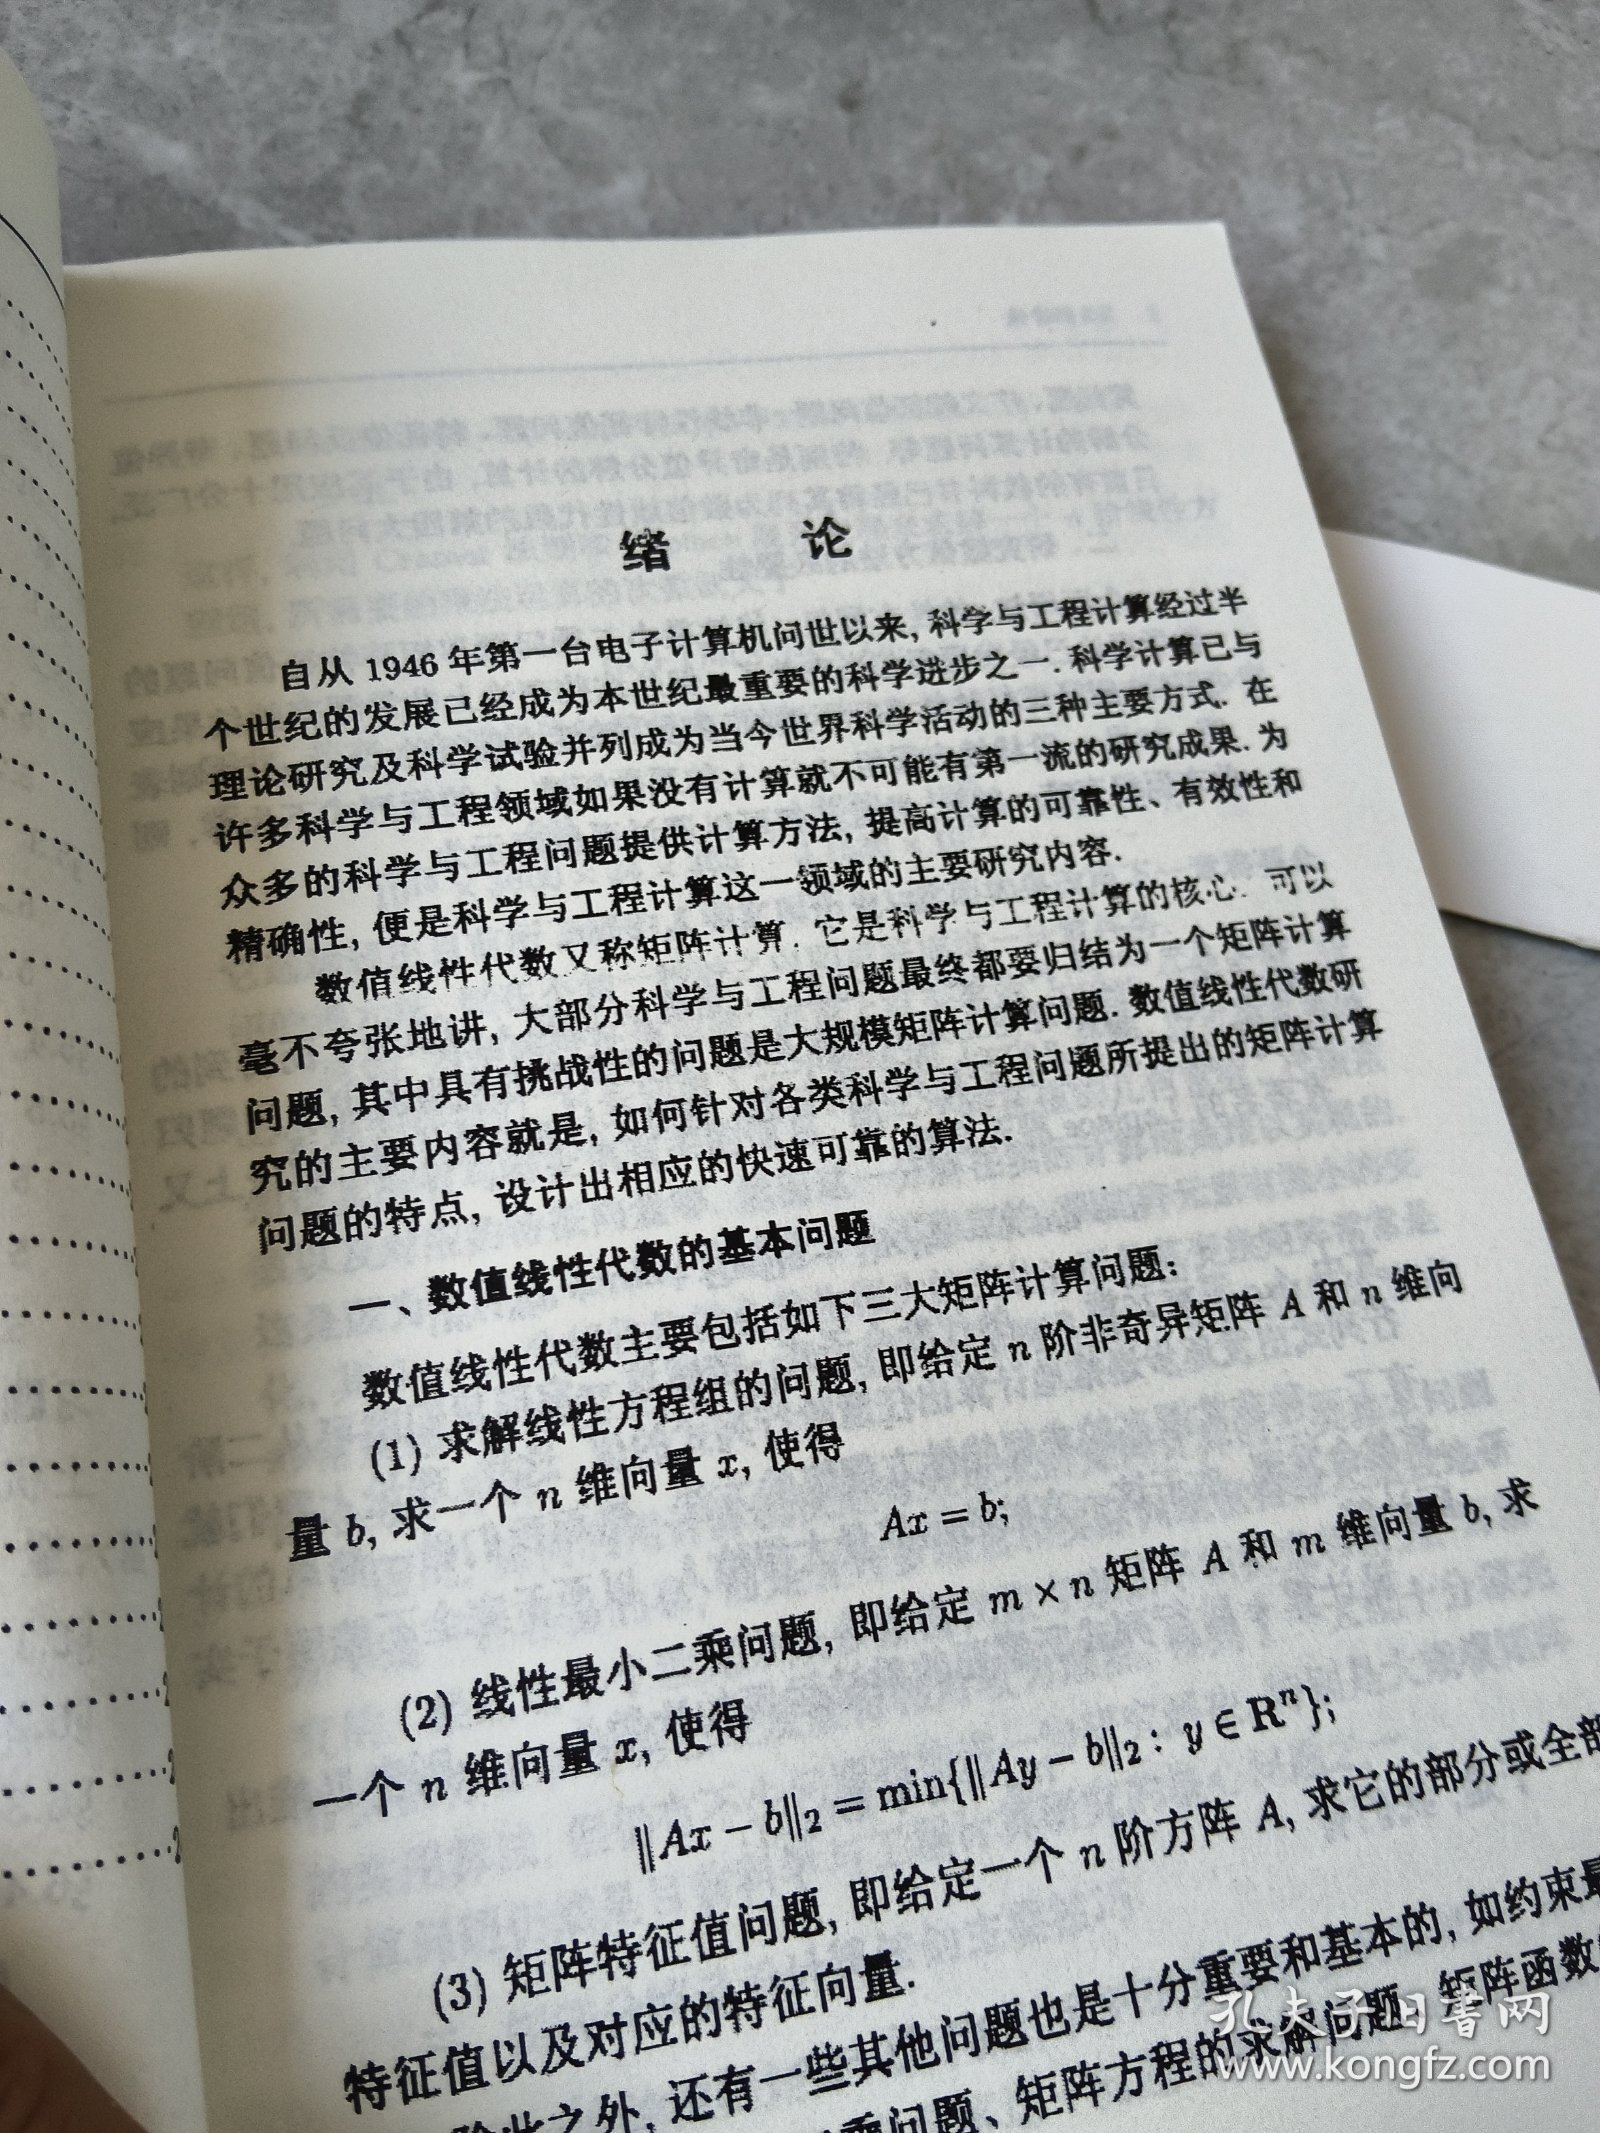 绪 论
自从 1946 年第一台电子计算机问世以来, 科学与工程计算经过半
个世纪的发展已经成为本世纪最重要的科学进步之一. 科学计算已与
理论研究及科学试验并列成为当今世界科学活动的三种主要方式. 在
许多科学与工程领域如果没有计算就不可能有第一流的研究成果. 为
众多的科学与工程问题提供计算方法, 提高计算的可靠性、有效性和
精确性, 便是科学与工程计算这一领域的主要研究内容.
数值线性代数又称矩阵计算. 它是科学与工程计算的核心. 可以
毫不夸张地讲, 大部分科学与工程问题最终都要归结为一个矩阵计算
问题, 其中具有挑战性的问题是大规模矩阵计算问题. 数值线性代数研
究的主要内容就是, 如何针对各类科学与工程问题所提出的矩阵计算
问题的特点, 设计出相应的快速可靠的算法.
一、数值线性代数的基本问题
数值线性代数主要包括如下三大矩阵计算问题:
(1) 求解线性方程组的问题, 即给定 n 阶非奇异矩阵 A 和 n 维向
量 b, 求一个 n 维向量 x, 使得
Ax = b;
(2) 线性最小二乘问题, 即给定 m × n 矩阵 A 和 m 维向量 b, 求
一个 n 维向量 x, 使得
‖Ax − b‖₂ = min{‖Ay − b‖₂ : y ∈ Rⁿ};
(3) 矩阵特征值问题, 即给定一个 n 阶方阵 A, 求它的部分或全部
特征值以及对应的特征向量.
除此之外, 还有一些其他问题也是十分重要和基本的, 如约束最
乘问题、矩阵方程的求解问题、矩阵函数
孔夫子旧书网
www.kongfz.com